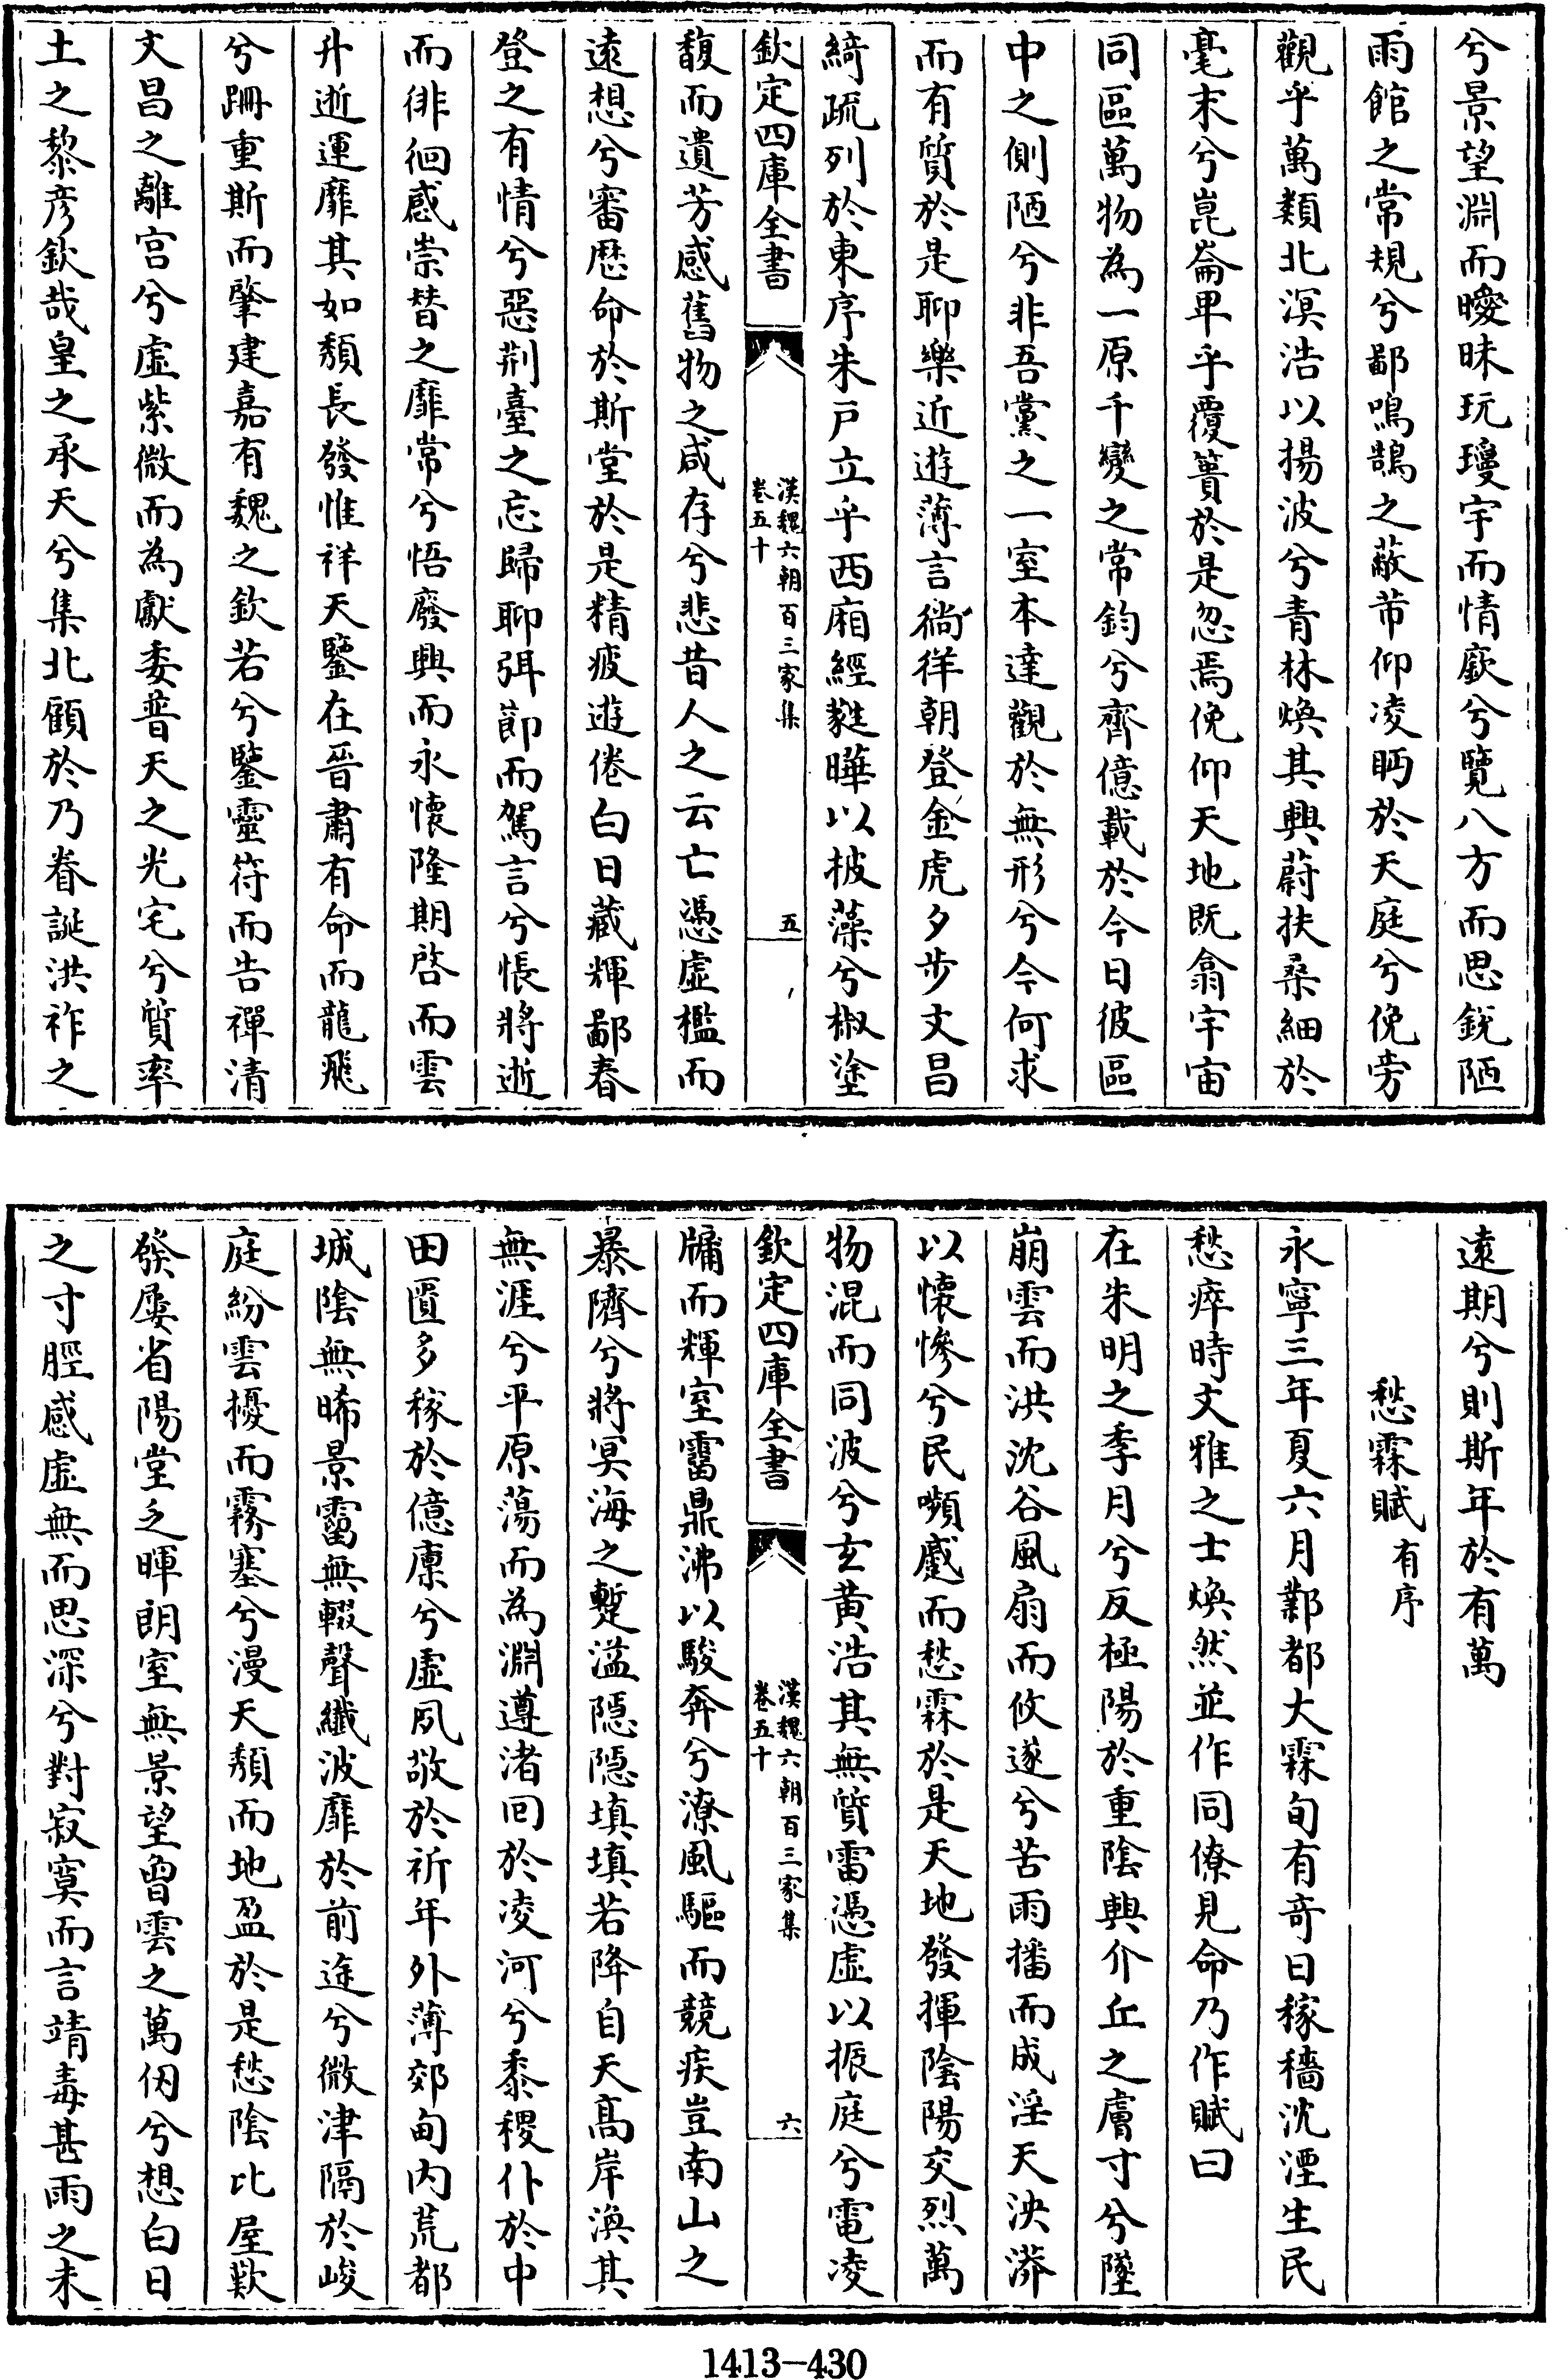 兮景望淵而曖昧玩瓊宇而情廞兮覽八方而思銳陋
雨館之常規兮鄙鳴鵠之蔽芾仰凌眄於天庭兮俛旁
觀乎萬類北溟浩以揚波兮青林煥其興蔚扶桑細於
毫末兮崑崙卑乎覆簣於是忽焉俛仰天地既翕宇宙
同區萬物為一原千變之常鈞兮齊億載於今日彼區
中之側陋兮非吾黨之一室本達觀於無形兮今何求
而有質於是聊樂近遊薄言徜徉朝登金虎夕步文昌
綺疏列於東序朱戶立乎西廂經蕤曄以披藻兮椒塗
欽定四庫全書
漢魏六朝百三家集
卷五十
五
馥而遺芳感舊物之咸存兮悲昔人之云亡憑虛檻而
遠想兮審歷命於斯堂於是精疲遊倦白日藏輝鄙春
登之有情兮惡荆臺之忘歸聊弭節而駕言兮悵將逝
而徘徊感崇替之靡常兮悟廢興而永懷隆期啓而雲
升逝運靡其如頽長發惟祥天鑒在晉肅有命而龍飛
兮跚重斯而肇建嘉有魏之欽若兮鑒靈符而告禪清
文昌之離宫兮虛紫微而為獻委普天之光宅兮質率
土之黎彦欽哉皇之承天兮集北顧於乃眷誕洪祚之
遠期兮則斯年於有萬
愁霖賦有序
永寧三年夏六月鄴都大霖旬有奇日稼穡沈湮生民
愁瘁時文雅之士煥然並作同僚見命乃作賦曰
在朱明之季月兮反極陽於重陰興介丘之膚寸兮墜
崩雲而洪沈谷風扇而攸遂兮苦雨播而成淫天泱漭
以懷慘兮民嚬蹙而愁霖於是天地發揮陰陽交烈萬
物混而同波兮玄黄浩其無質雷憑虛以振庭兮電凌
欽定四庫全書
漢魏六朝百三家集
卷五十
六
牖而輝室霤鼎沸以駿奔兮潦風驅而競疾豈南山之
暴隮兮將冥海之蹔溢隱隱填填若降自天高岸渙其
無涯兮平原蕩而為淵遵渚回於凌河兮黍稷仆於中
田匱多稼於億廪兮虛夙敬於祈年外薄郊甸内荒都
城陰無晞景霤無輟聲纖波靡於前途兮微津隔於峻
庭紛雲擾而霧塞兮漫天頽而地盈於是愁陰比屋歎
發屢省陽堂之暉朗室無景望曾雲之萬仞兮想白日
之寸脛感虛無而思深兮對寂寞而言靖毒甚雨之未
1413-430